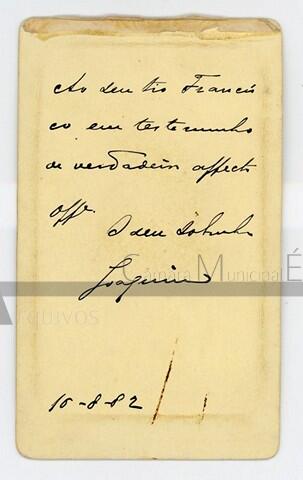 Ao seu tio Francis
co em testemunho
de verdadeiro affecto
offe.
O seu sobrinho
Joaquim
Câmara Municipal É
Arquivos
10-8-82